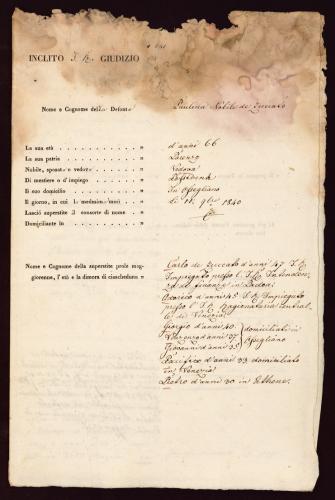 INCLITO I. R. GIUDIZIO
Nome e Cognome della Defonta Paulina Nobile de Zuccato
La sua età " d'anni 66
La sua patria "
Nobile, sposato o vedovo " Vedova
Di mestiere o d'impiego " Possidente
Il suo domicilio " In
Il giorno, in cui " li 11. 9bre 1840
Lasciò superstite consorte di nome "
Domiciliante in "
Nome e Cognome della superstite prole maggiorenne, l' età e la dimora di ciascheduno "
Carlo de Zuccato d'anni 47 I. R.
Impiegato presso l' I. R. Intendenza
di finanza in Padova
d'anni 45 I. R. Impiegato
presso l' I. R. Ragionateria centrale
di Venezia
Giorgio d'anni 40.
d'anni 37 domiciliati in
Giovanni d'anni 35
Pacifico d'anni 33 domiciliato
in Venezia
Pietro d'anni 30 in Athene.